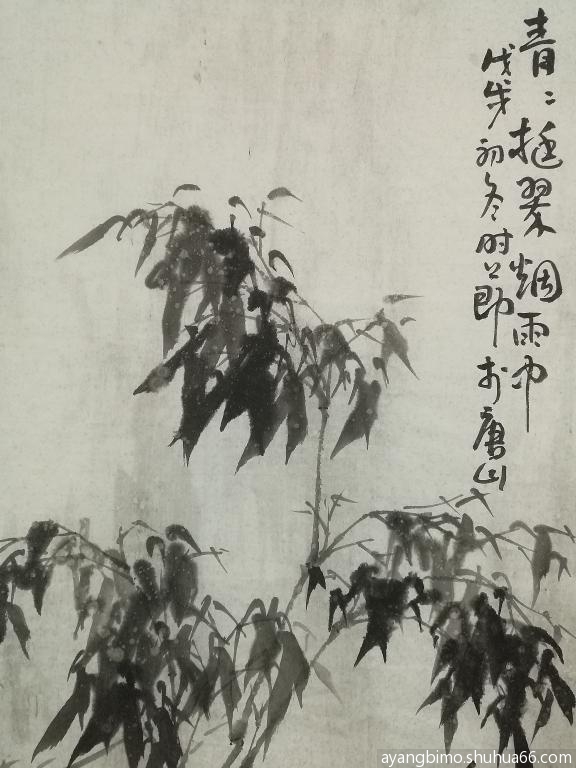 青〻挺翠烟雨中
戊戌初冬时节於唐山
ayangbimo.shuhua66.com